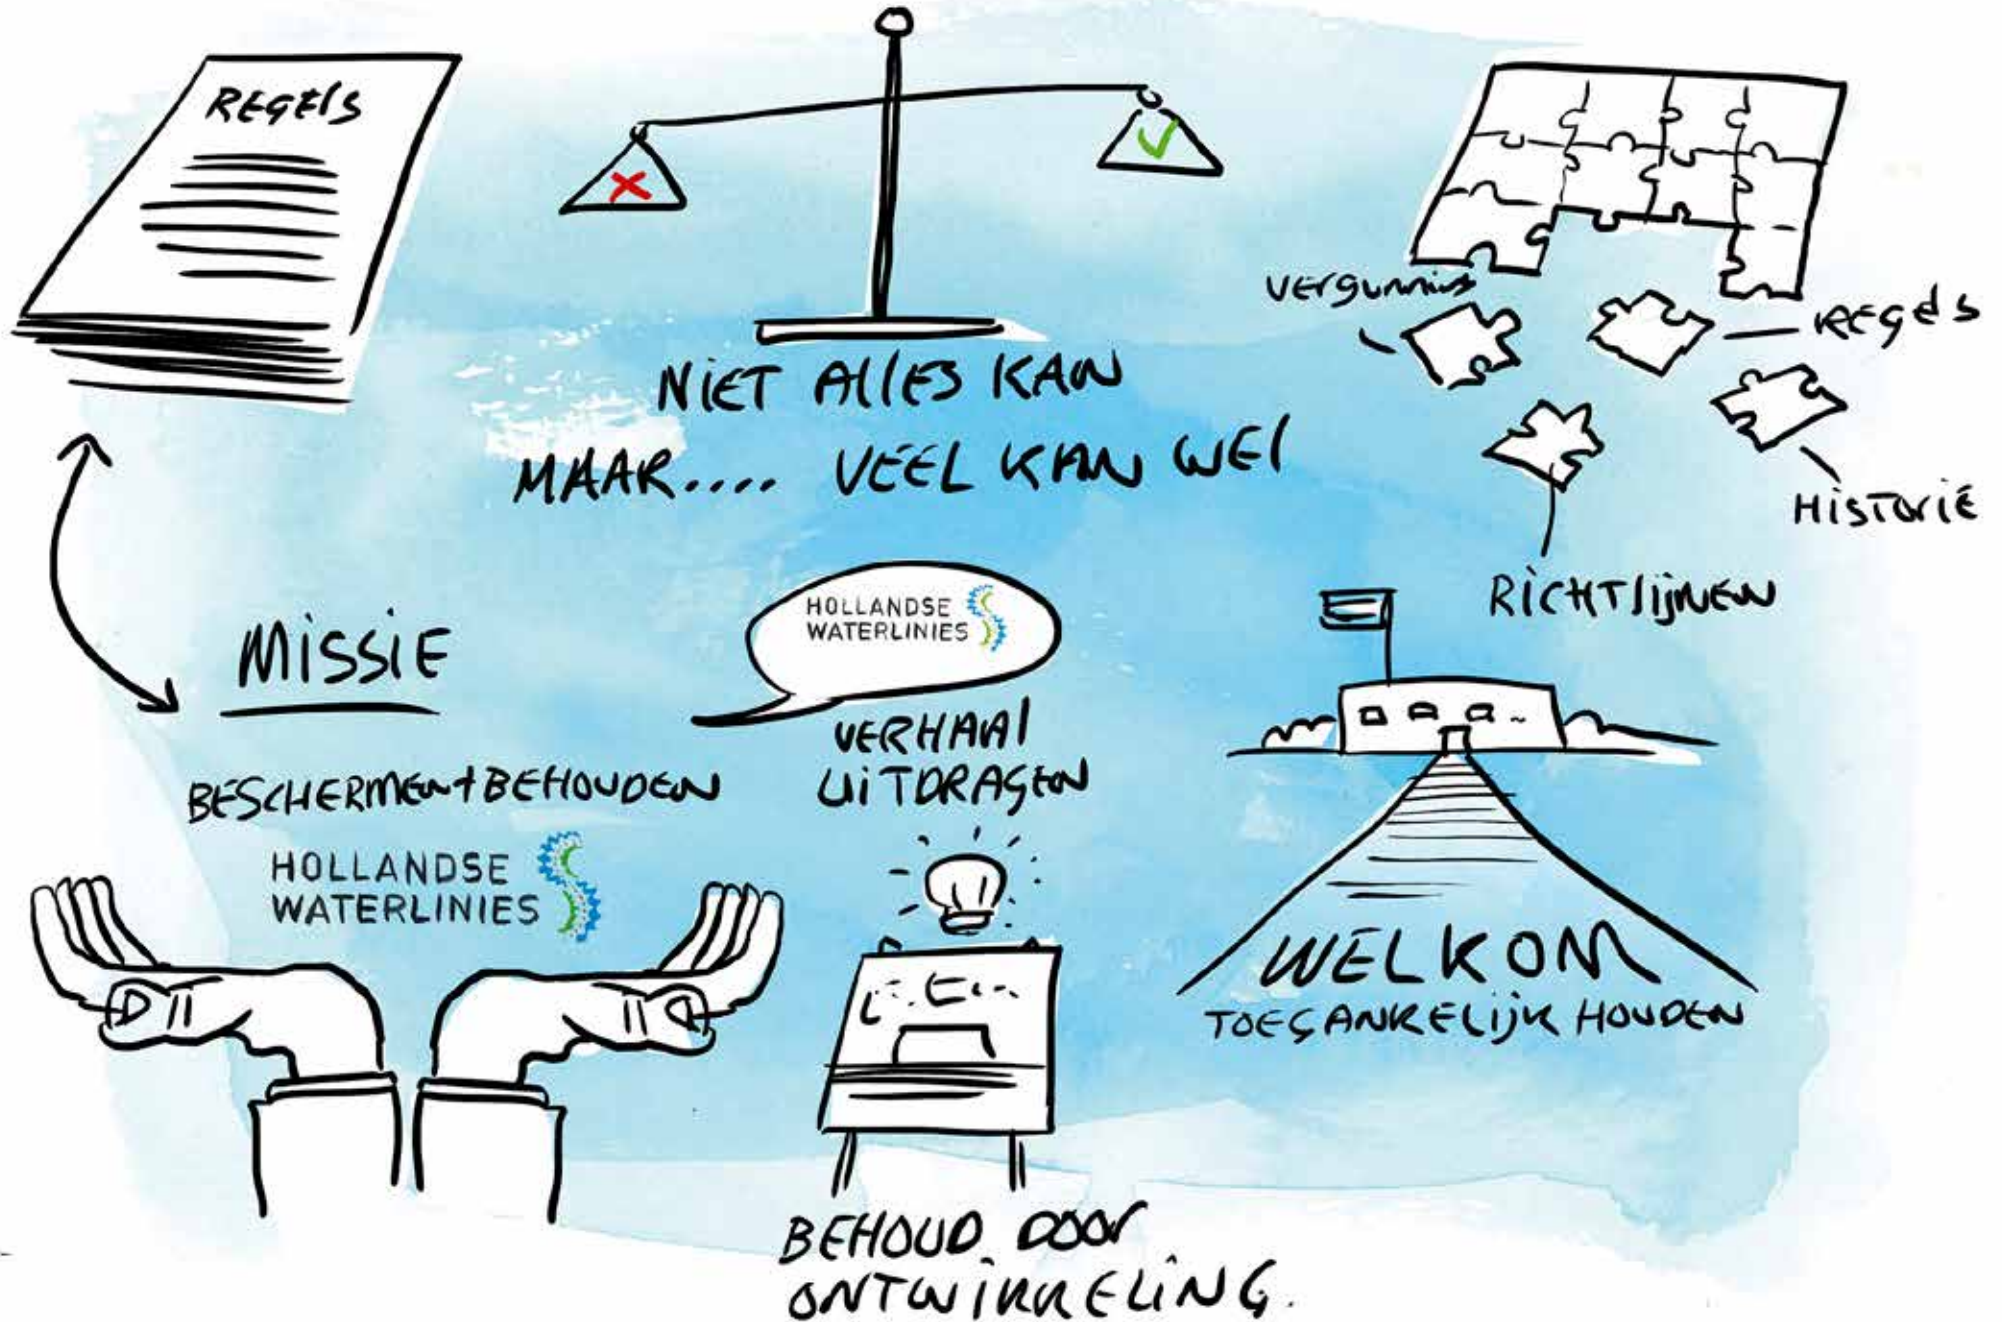 REGELS
NIET ALLES KAN
MAAR.... VEEL KAN WEL
VERGUNNING
REGELS
HISTORIE
RICHTLIJNEN
MISSIE
BESCHERMEN + BEHOUDEN
HOLLANDSE
WATERLINIES
HOLLANDSE
WATERLINIES
VERHAAL
UITDRAGEN
BEHOUD DOOR
ONTWIKKELING.
WELKOM
TOEGANKELIJK HOUDEN